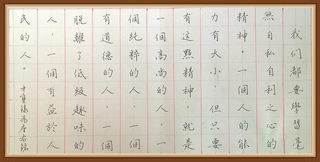 我們都要學習毫
無自私自利之心的
精神。一個人的能
力有大小，但只要
有這點精神，就是
一個高尚的人，一
個純粹的人，一個
有道德的人，一個
脫離了低級趣味的
人，一個有益於人
民的人。